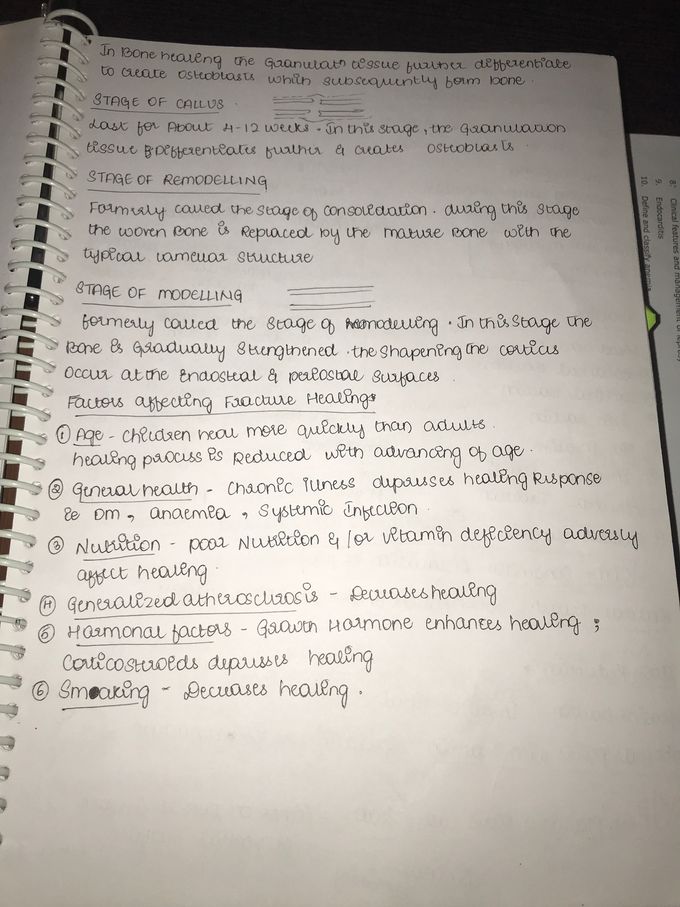 In Bone healing the Granulatn tissue further differentiate
to create Osteoblasts which subsequently form bone.
STAGE OF CALLUS.
Last for About 4-12 weeks. In this stage, the Granulation
tissue differentiates further & creates Osteoblasts.
STAGE OF REMODELLING
Formerly called the stage of consolidation. during this stage
the woven Bone is Replaced by the mature Bone with the
typical lamellar structure
STAGE OF MODELLING
formerly called the stage of Remodelling. In this stage the
Bone is Gradually strengthened. the shapening the corticis
Occur at the Endosteal & periostal surfaces.
Factors affecting Fracture Healing:
① Age - children heal more quickly than adults.
healing process is Reduced with advancing of age.
② General health - Chronic illness depresses healing Response
ie DM, anaemia, Systemic Infection.
③ Nutrition - poor Nutrition & /or vitamin deficiency adversly
affect healing.
④ Generalized atherosclrosis - Decreases healing
⑤ Harmonal factors - Growth Harmone enhances healing ;
Corticosteroids depresses healing
⑥ Smoaking - Decreases healing.
8. Clinical features and management of
9. Endocarditis
10. Define and classify